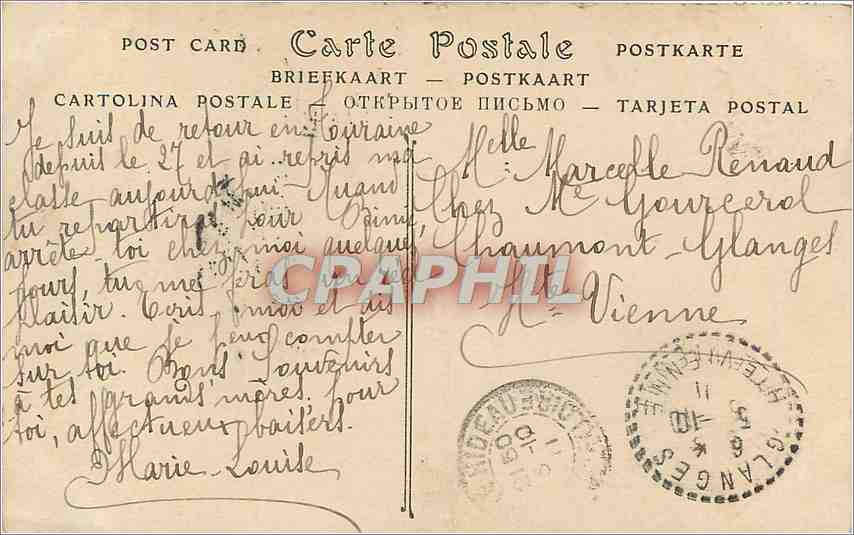 POST CARD Carte Postale POSTKARTE
BRIEFKAART — POSTKAART
CARTOLINA POSTALE — ОТКРЫТОЕ ПИСЬМО — TARJETA POSTAL
Je suis de retour en Touraine
depuis le 27 et ai repris ma
classe aujourd'hui. Quand
tu repartiras pour
arrête-toi chez moi quelques
jours, tu me feras un réel
plaisir. Ecris-moi et dis
moi que je peux compter
sur toi. Bons souvenirs
à tes grands'mères. Pour
toi, affectueux baisers.
Marie-Louise
Melle Marcelle Renaud
Chez Me Gourcerol
Chaumont-Glanges
Hte Vienne
CPAPHIL
GLANGES
HTE VIENNE